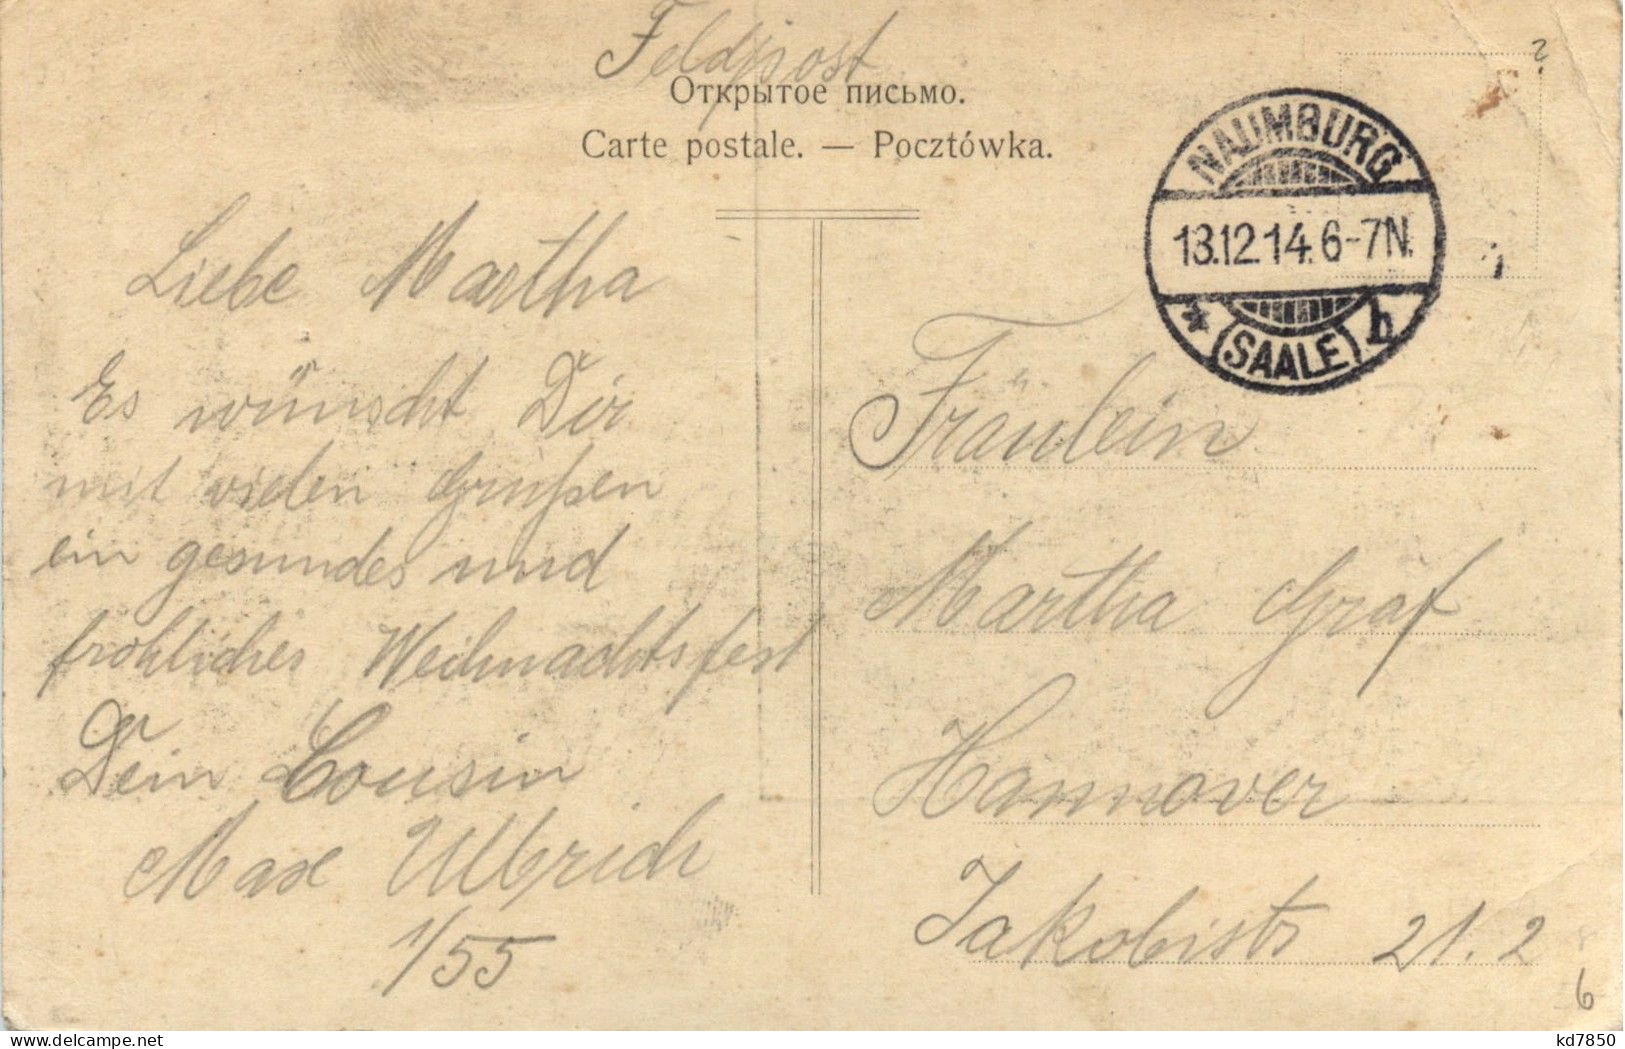 Feldpost
Открытое письмо.
Carte postale. — Pocztówka.
NAUMBURG
13.12.14. 6-7N.
* (SAALE) b
Liebe Martha
Es wünscht Dir
mit vielen Grußen
ein gesundes und
fröhliches Weihnachtsfest
Dein Cousin
Max Ulbrich
1/55
Fräulein
Martha Graf
Hannover
Jakobistr 21. 2
?
6
kd7850